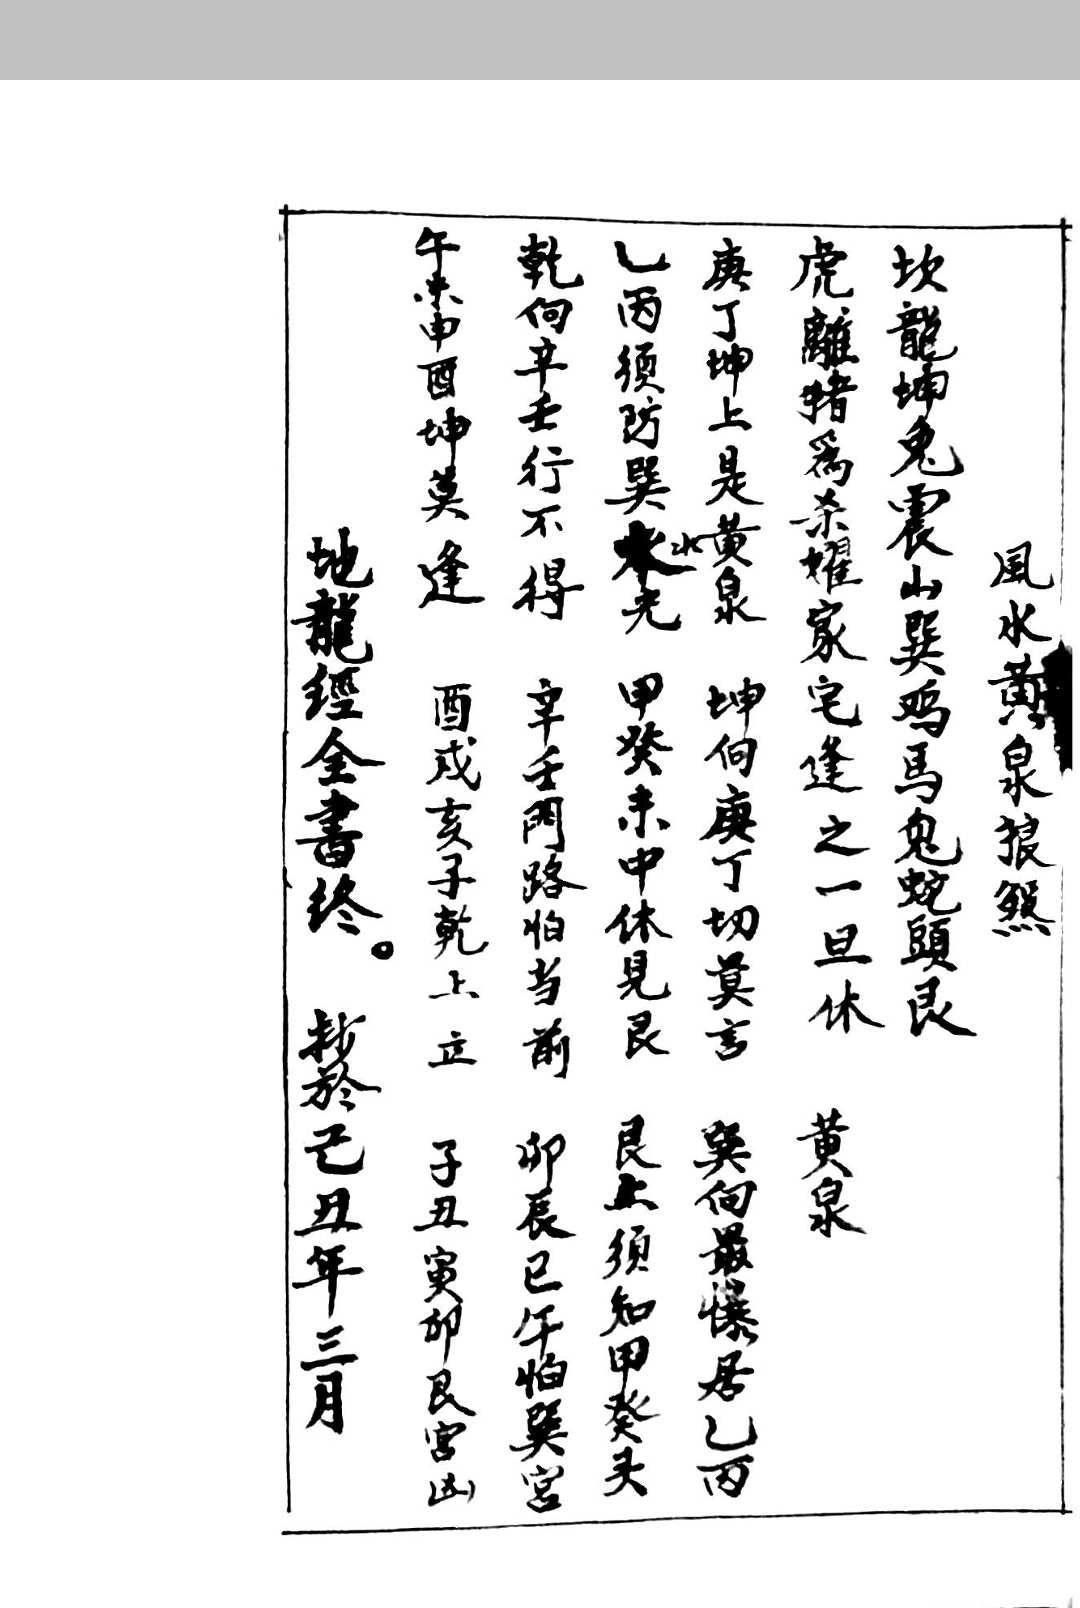 風水黃泉狼煞
坎龍坤兔震山巽鸡馬兔蛇頭艮
虎離猪為杀耀家宅逢之一旦休 黄泉
庚丁坤上是黄泉 坤向庚丁切莫言 巽向最懆居乙丙
乙丙须防巽水先 甲癸未中休見艮 艮上须知甲癸头
乾向辛壬行不得 辛壬門路怕当前 卯辰巳午怕巽宮
午未申酉坤莫逢 酉戌亥子乾上立 子丑寅卯艮宮凶
地龍經全書终。 抄於己丑年三月